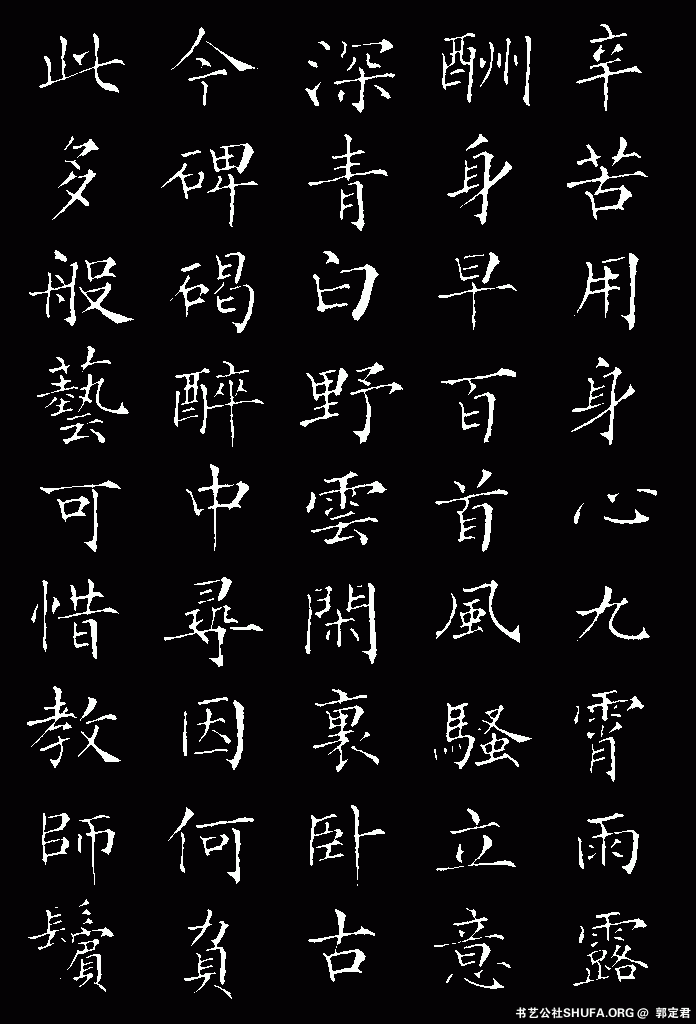 辛苦用身心九霄雨露
酬身早百首風騷立意
深青白野雲閑裏卧古
今碑碣醉中尋因何負
此多般藝可惜教師鬢
书艺公社SHUFA.ORG @ 郭定君